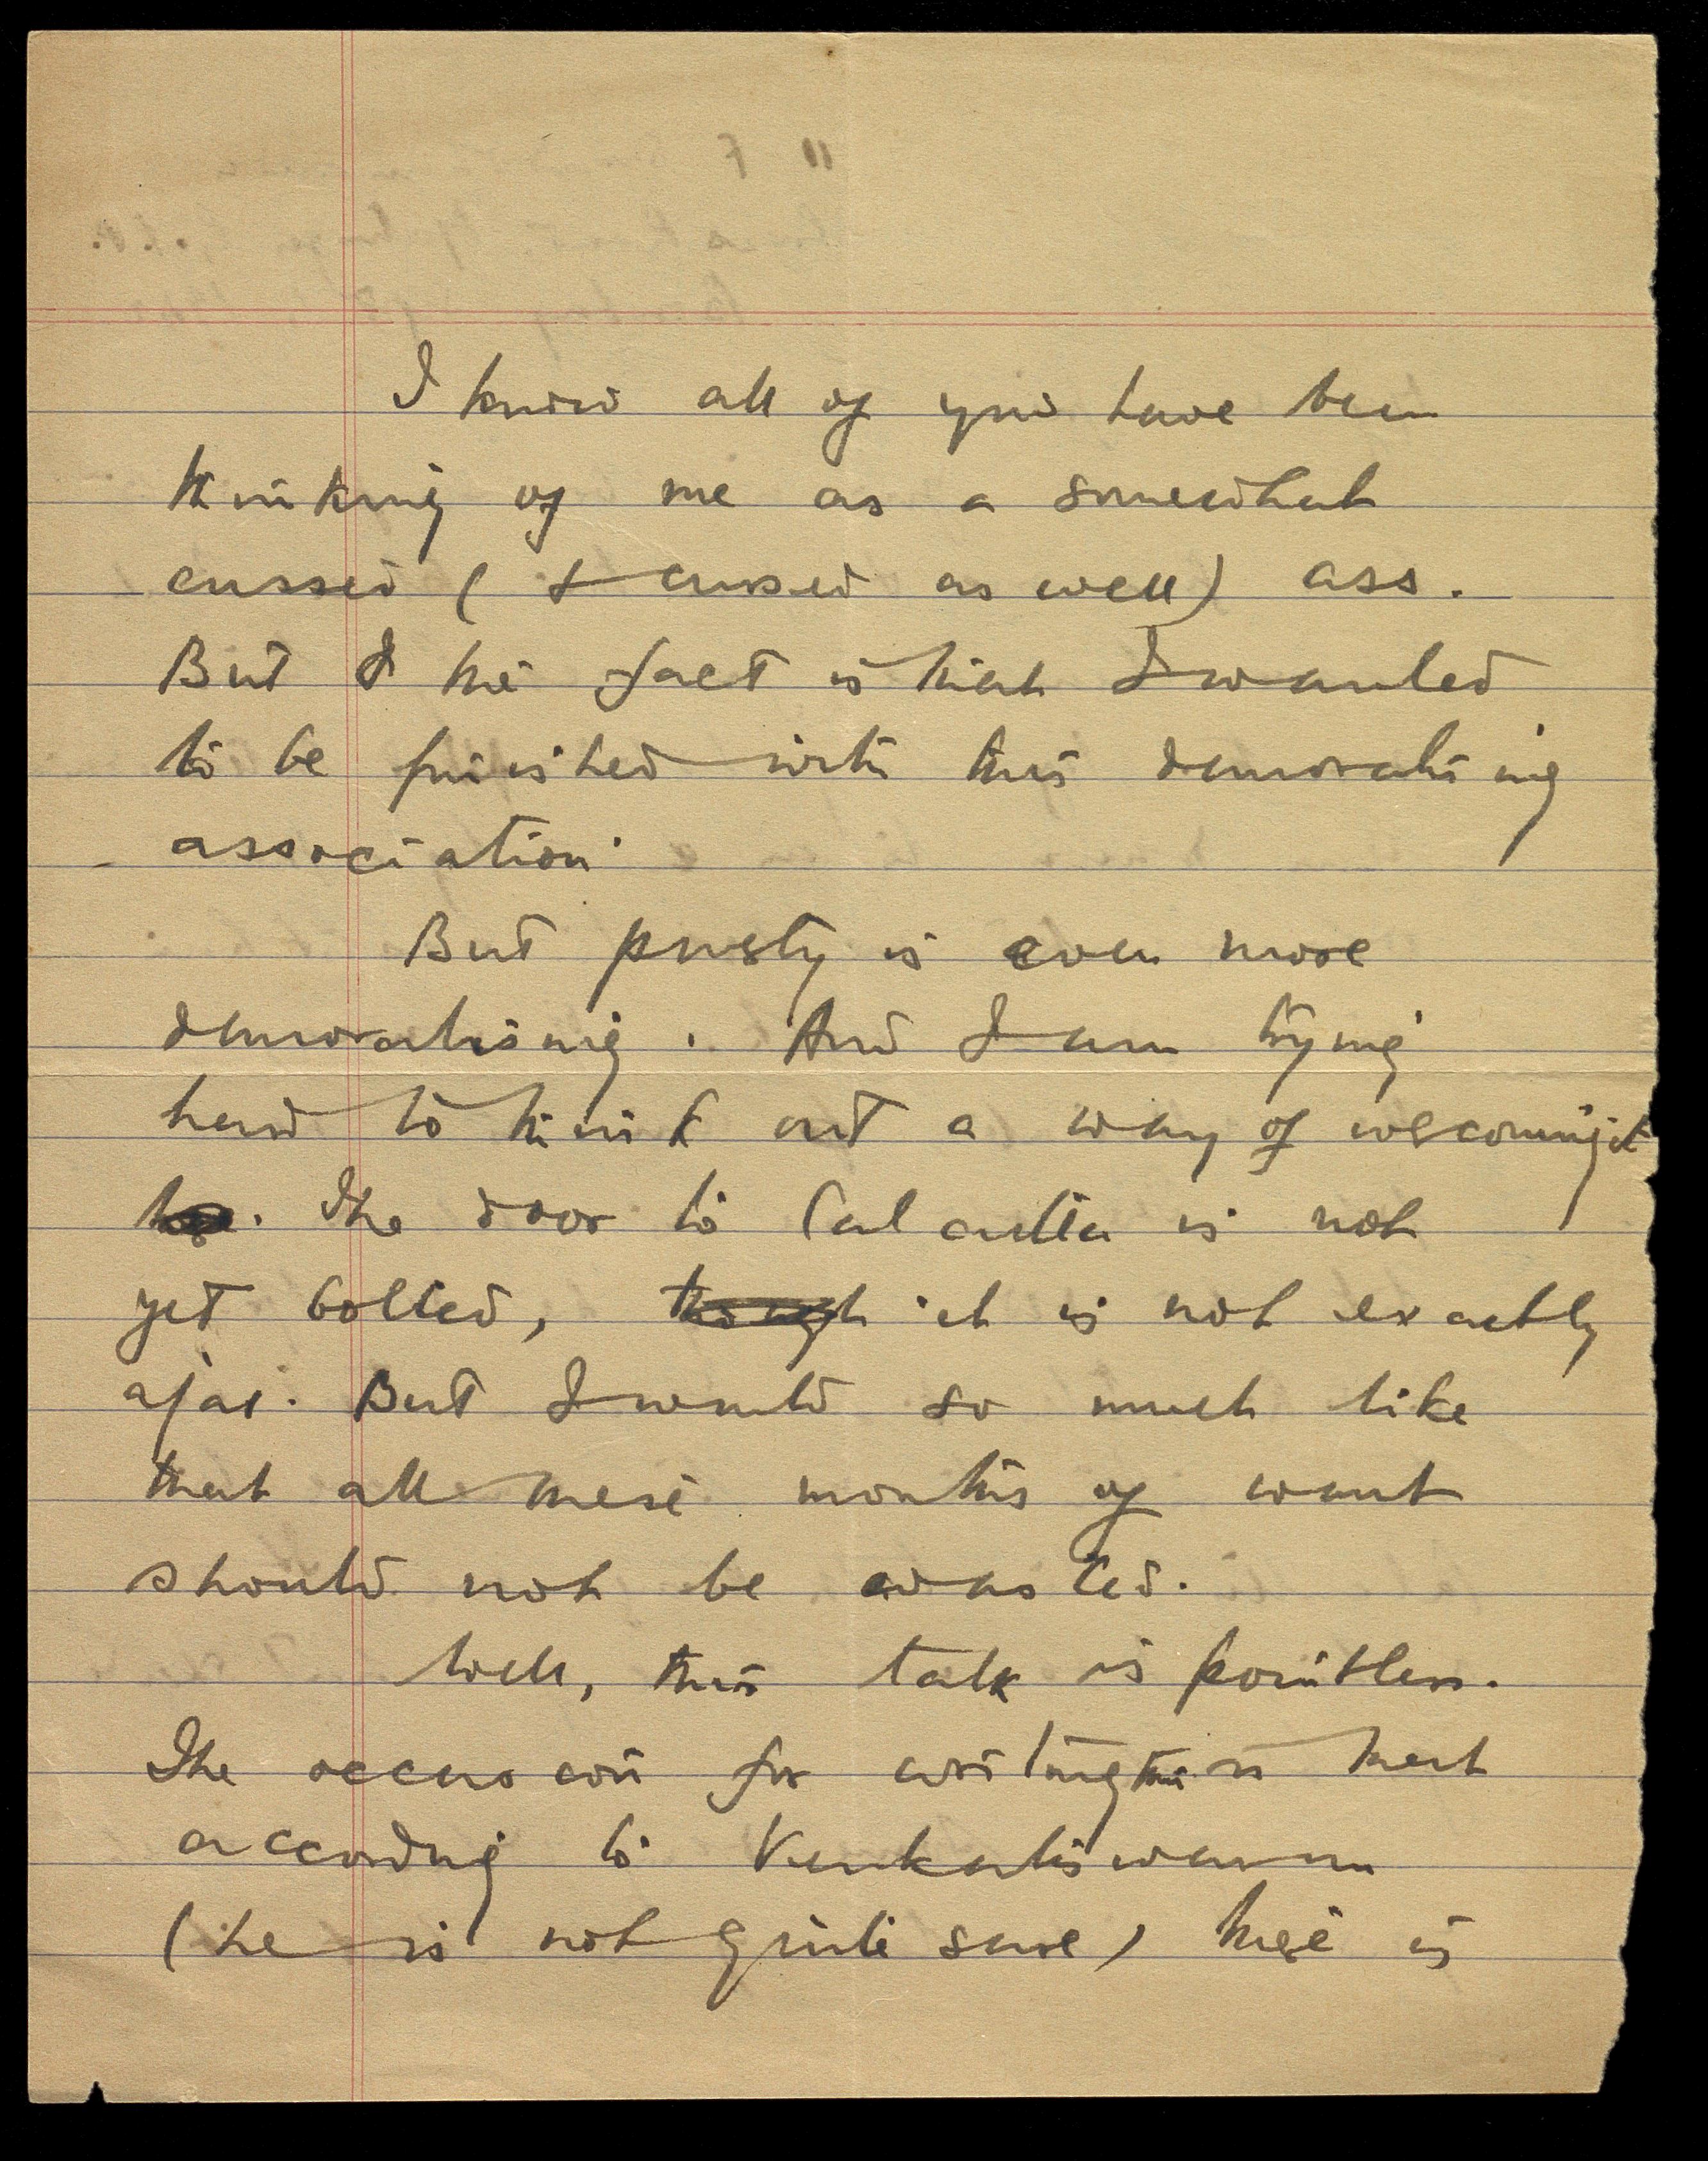 I know all of you have been
thinking of me as a somewhat
cussed (& cursed as well) ass.
But I the fact is that I wanted
to be finished with this demoralising
association.
But is even more
demoralising. And I am trying
hard to think out a way of it
The door to Calcutta is not
yet bolted, though it is not exactly
ajar. But I would so much like
that all these months of want
should not be wasted.
Well, this talk is pointless.
The occasion for writing this is that
according to Venkateswaran
(he is not quite sure) there is